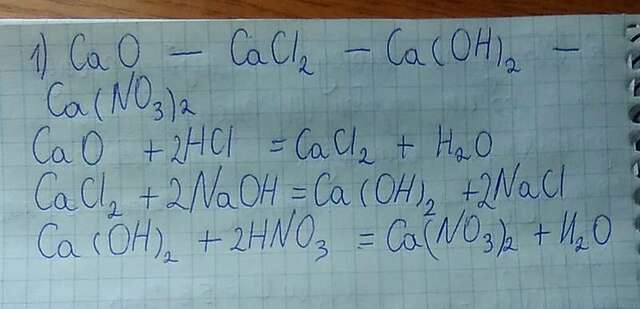 1) CaO — CaCl₂ — Ca(OH)₂ —
Ca(NO₃)₂
CaO + 2HCl = CaCl₂ + H₂O
CaCl₂ + 2NaOH = Ca(OH)₂ + 2NaCl
Ca(OH)₂ + 2HNO₃ = Ca(NO₃)₂ + H₂O